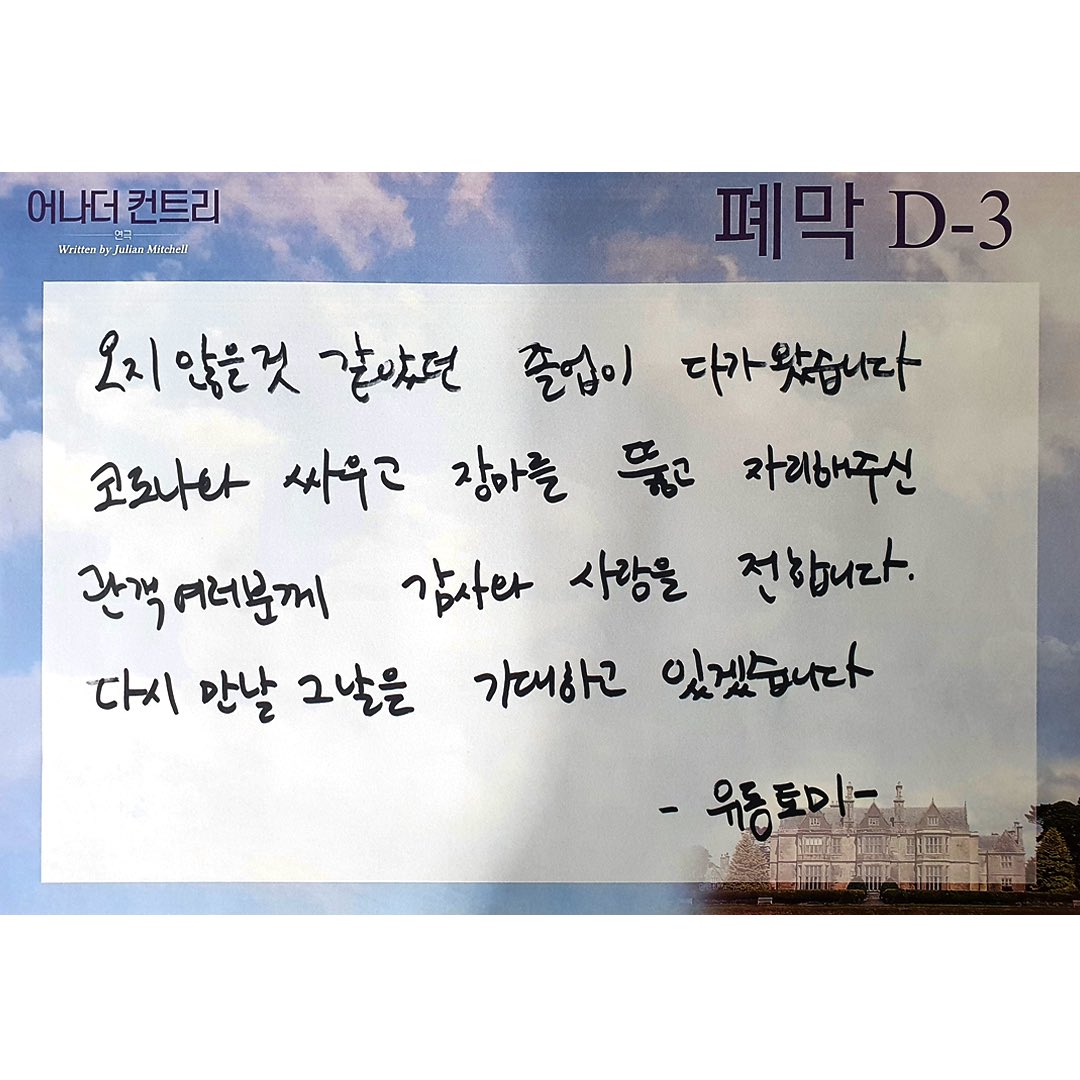 어나더 컨트리
연극
Written by Julian Mitchell
폐막 D-3
오지 않을것 같았던 졸업이 다가왔습니다
코로나와 싸우고 장마를 뚫고 자리해주신
관객 여러분께 감사와 사랑을 전합니다.
다시 만날 그날을 기대하고 있겠습니다
- 유동토미 -